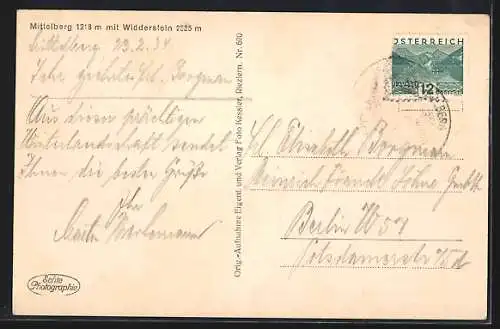 Mittelberg 1218 m mit Widderstein 2535 m
Mittelberg 23.2.34
Sehr geehrtes Frl. Borgman
Aus dieser prächtigen
Winterlandschaft sendet
Ihnen die besten Grüße
Ihr
Echte
Photographie
Orig.-Aufnahme Eigent. und Verlag Foto Kessler, Riezlern. Nr. 610
ÖSTERREICH
12
GROSCHEN
Frl. Elisabeth Borgman
Heinrich Söhne GmbH
Berlin W 57
Potsdamerstr. 75d